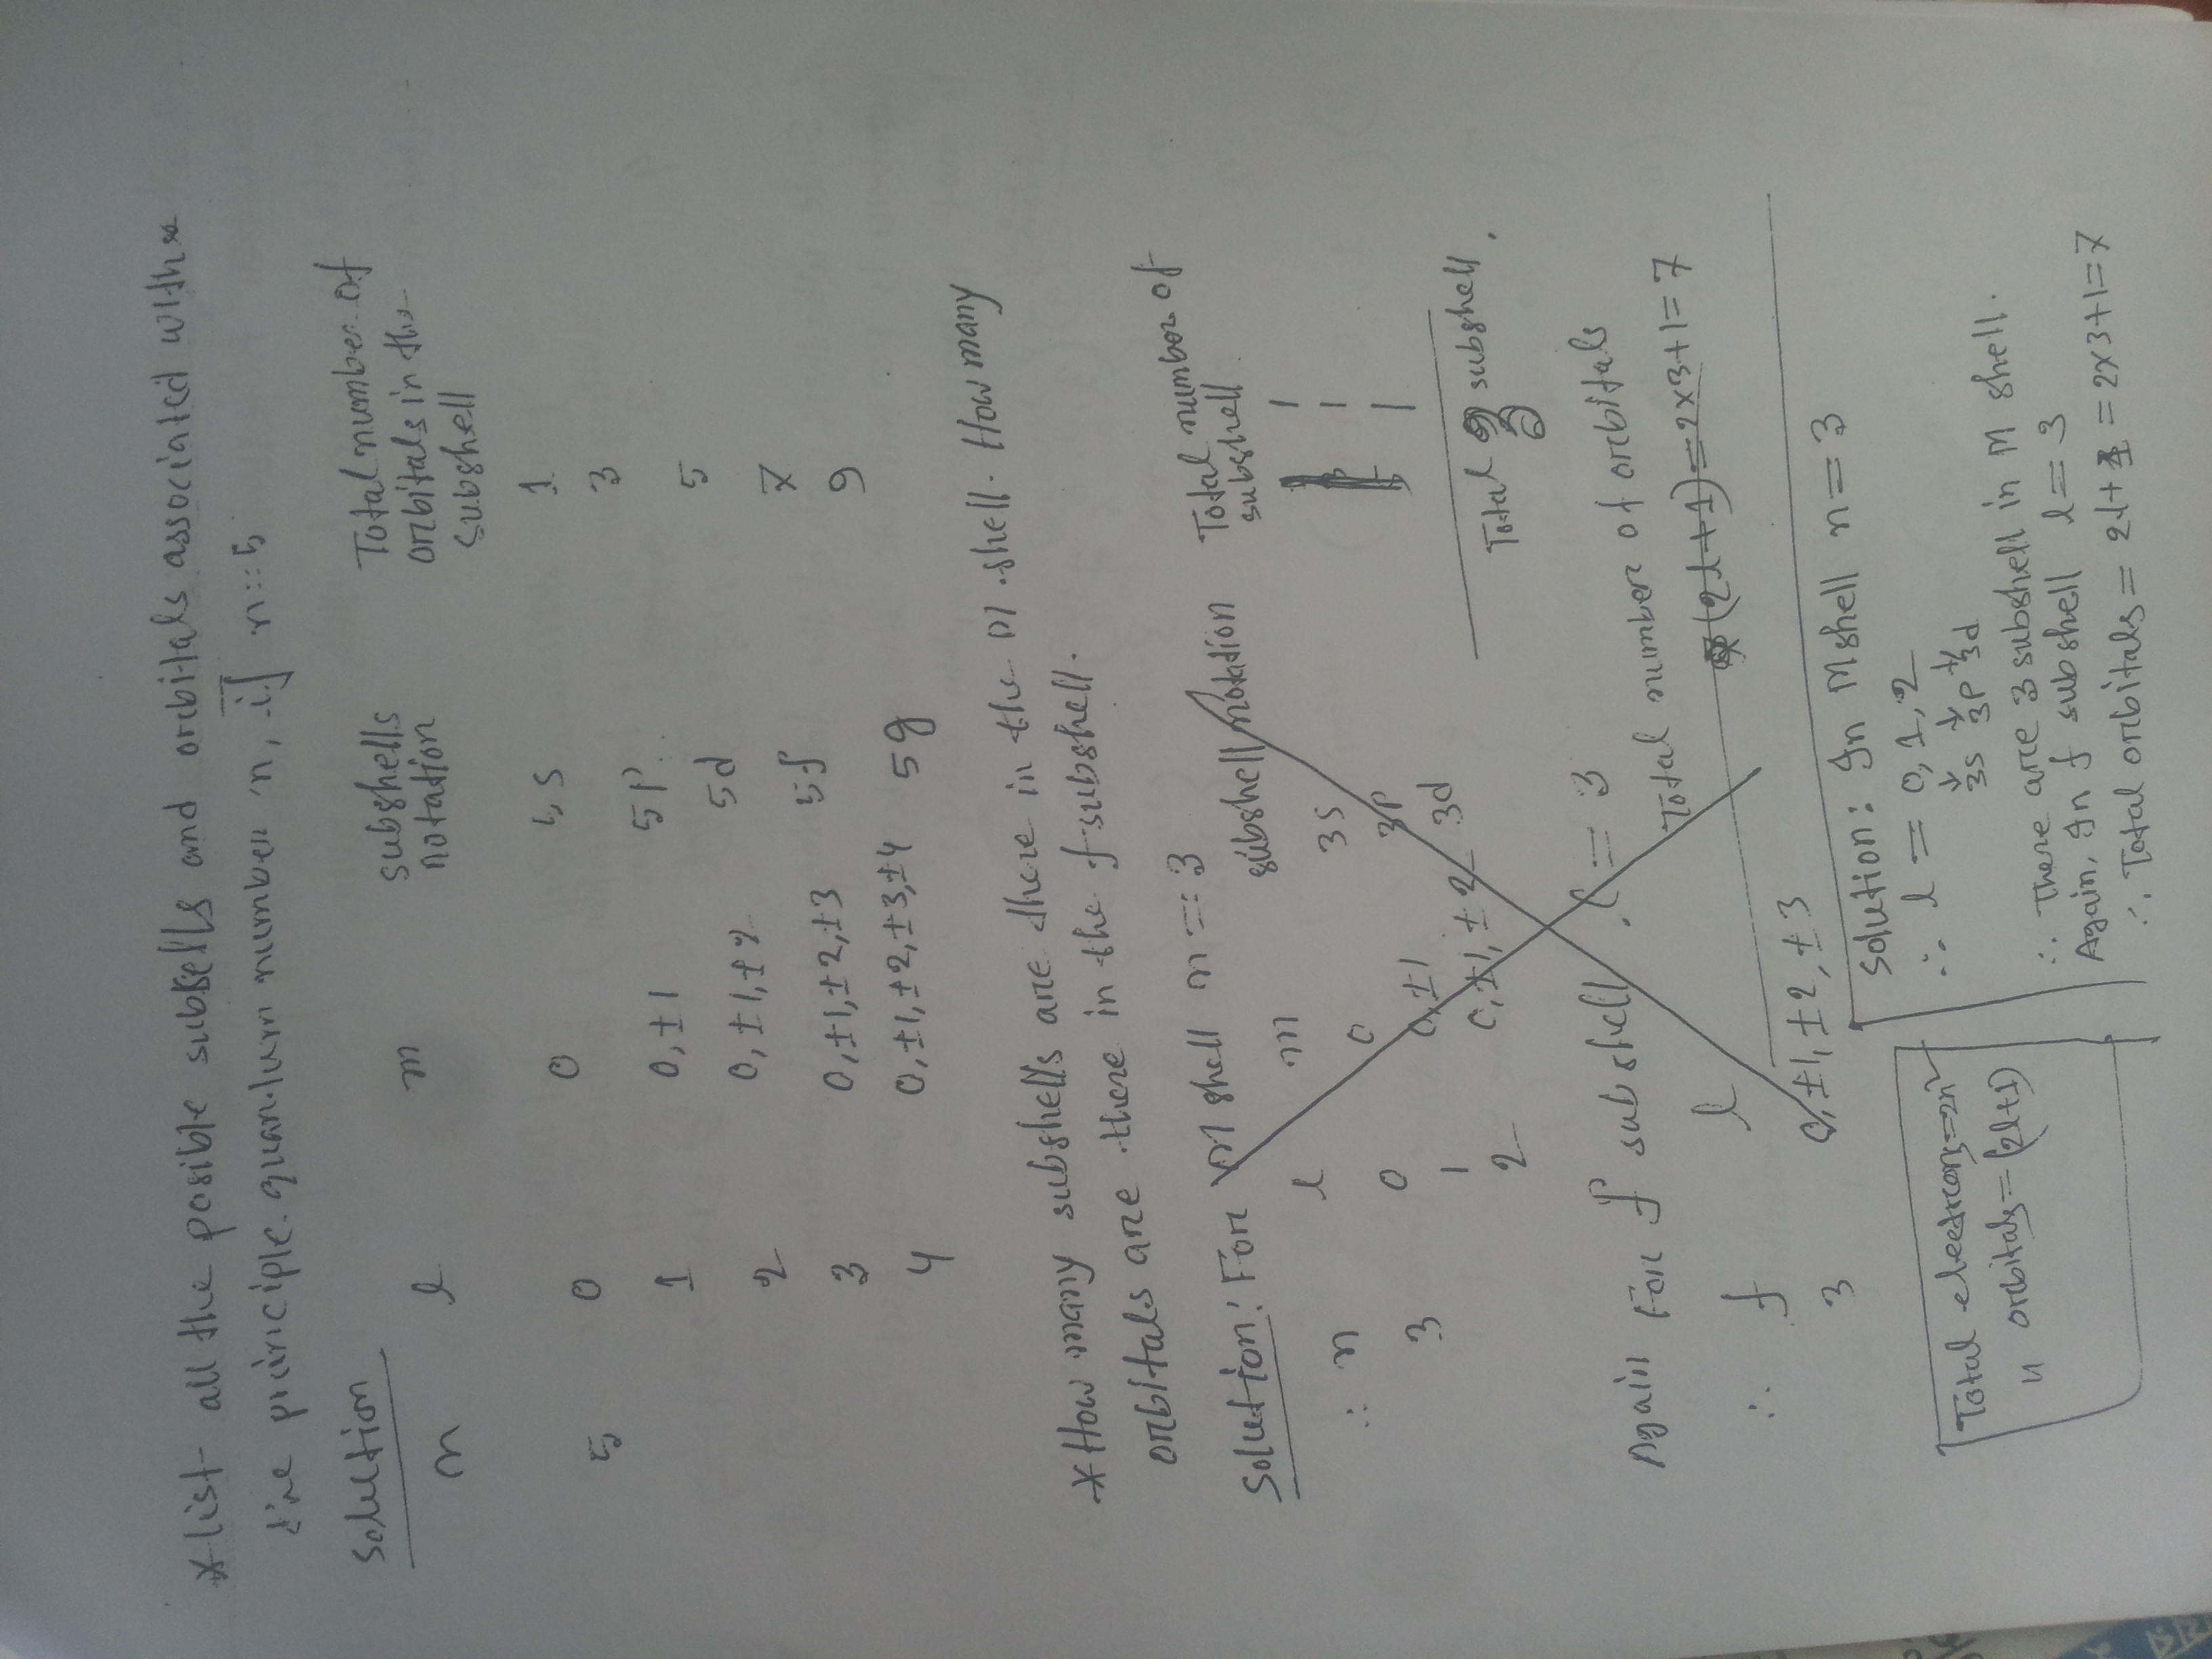 * list all the posible subsells and orbitals associated with
the principle quantum number n, if n = 5
Solution
n l m subshells notation Total number of orbitals in the subshell
5 0 0 5s 1
1 0, ±1 5p 3
2 0, ±1, ±2 5d 5
3 0, ±1, ±2, ±3 5f 7
4 0, ±1, ±2, ±3, ±4 5g 9
* How many subshells are there in the M shell. How many
orbitals are there in the f subshell.
Solution: For M shell n = 3
∴ n l m subshell notation Total number of subshell
3 0 0 3s 1
1 0, ±1 3p 1
2 0, ±1, ±2 3d 1
Total 3 subshell.
Again For f subshell l = 3
Total number of orbitals
∴ f l (2l+1) = 2×3+1 = 7
3 0, ±1, ±2, ±3
Total electrons = 2n²
" orbitals = (2l+1)
Solution: In M shell n = 3
∴ l = 0, 1, 2
↓ ↓ ↓
3s 3p 3d
∴ There are 3 subshell in M shell.
Again, In f subshell l = 3
∴ Total orbitals = 2l+1 = 2×3+1 = 7